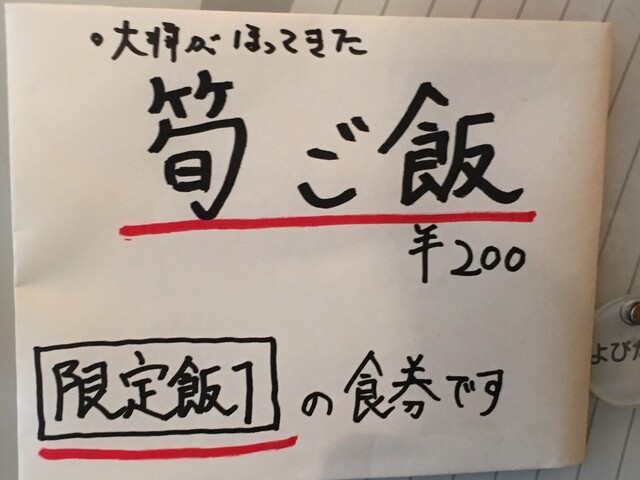 ・大将がほってきた
筍ご飯
¥200
限定飯1の食券です
よびだ